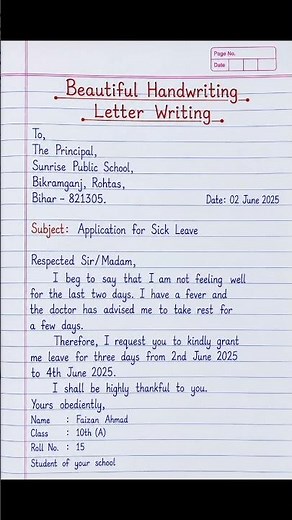 Page No.
Date
Beautiful Handwriting
Letter Writing
To,
The Principal,
Sunrise Public School,
Bikramganj, Rohtas,
Bihar – 821305.
Date: 02 June 2025
Subject: Application for Sick Leave
Respected Sir/Madam,
I beg to say that I am not feeling well
for the last two days. I have a fever and
the doctor has advised me to take rest for
a few days.
Therefore, I request you to kindly grant
me leave for three days from 2nd June 2025
to 4th June 2025.
I shall be highly thankful to you.
Yours obediently,
Name : Faizan Ahmad
Class : 10th (A)
Roll No. : 15
Student of your school